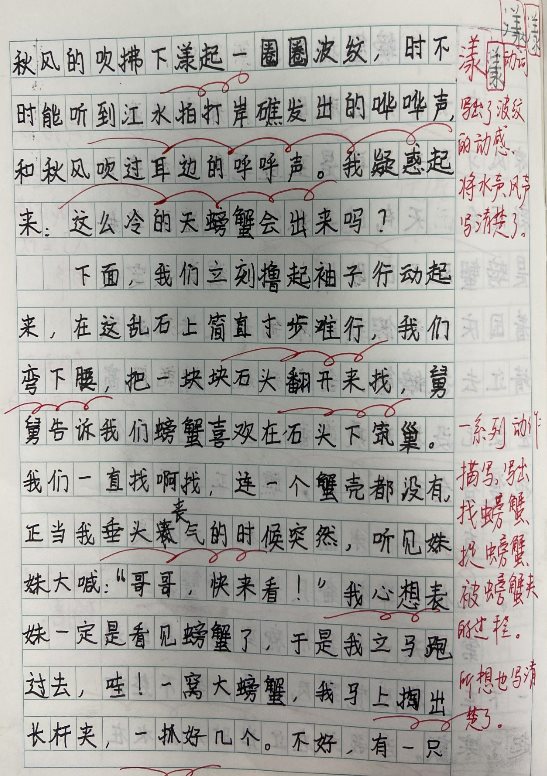 秋风的吹拂下漾起一圈圈波纹，时不
时能听到江水拍打岸礁发出的哗哗声，
和秋风吹过耳边的呼呼声。我疑惑起
来：这么冷的天螃蟹会出来吗？
下面，我们立刻撸起袖子行动起
来，在这乱石上简直寸步难行，我们
弯下腰，把一块块石头翻开来找，舅
舅告诉我们螃蟹喜欢在石头下筑巢。
我们一直找啊找，连一个蟹壳都没有，
正当我垂头丧气的时候突然，听见妹
妹大喊：“哥哥，快来看！”我心想表
妹一定是看见螃蟹了，于是我立马跑
过去，哇！一窝大螃蟹，我马上掏出
长杆夹，一抓好几个。不好，有一只
漾 漾
漾 漾 动词
写出了波纹
的动感，
将水声、风声
写清楚了。
一系列动作
描写，写出
找螃蟹、
捉螃蟹、
被螃蟹夹
的过程。
所想也写清
楚了。